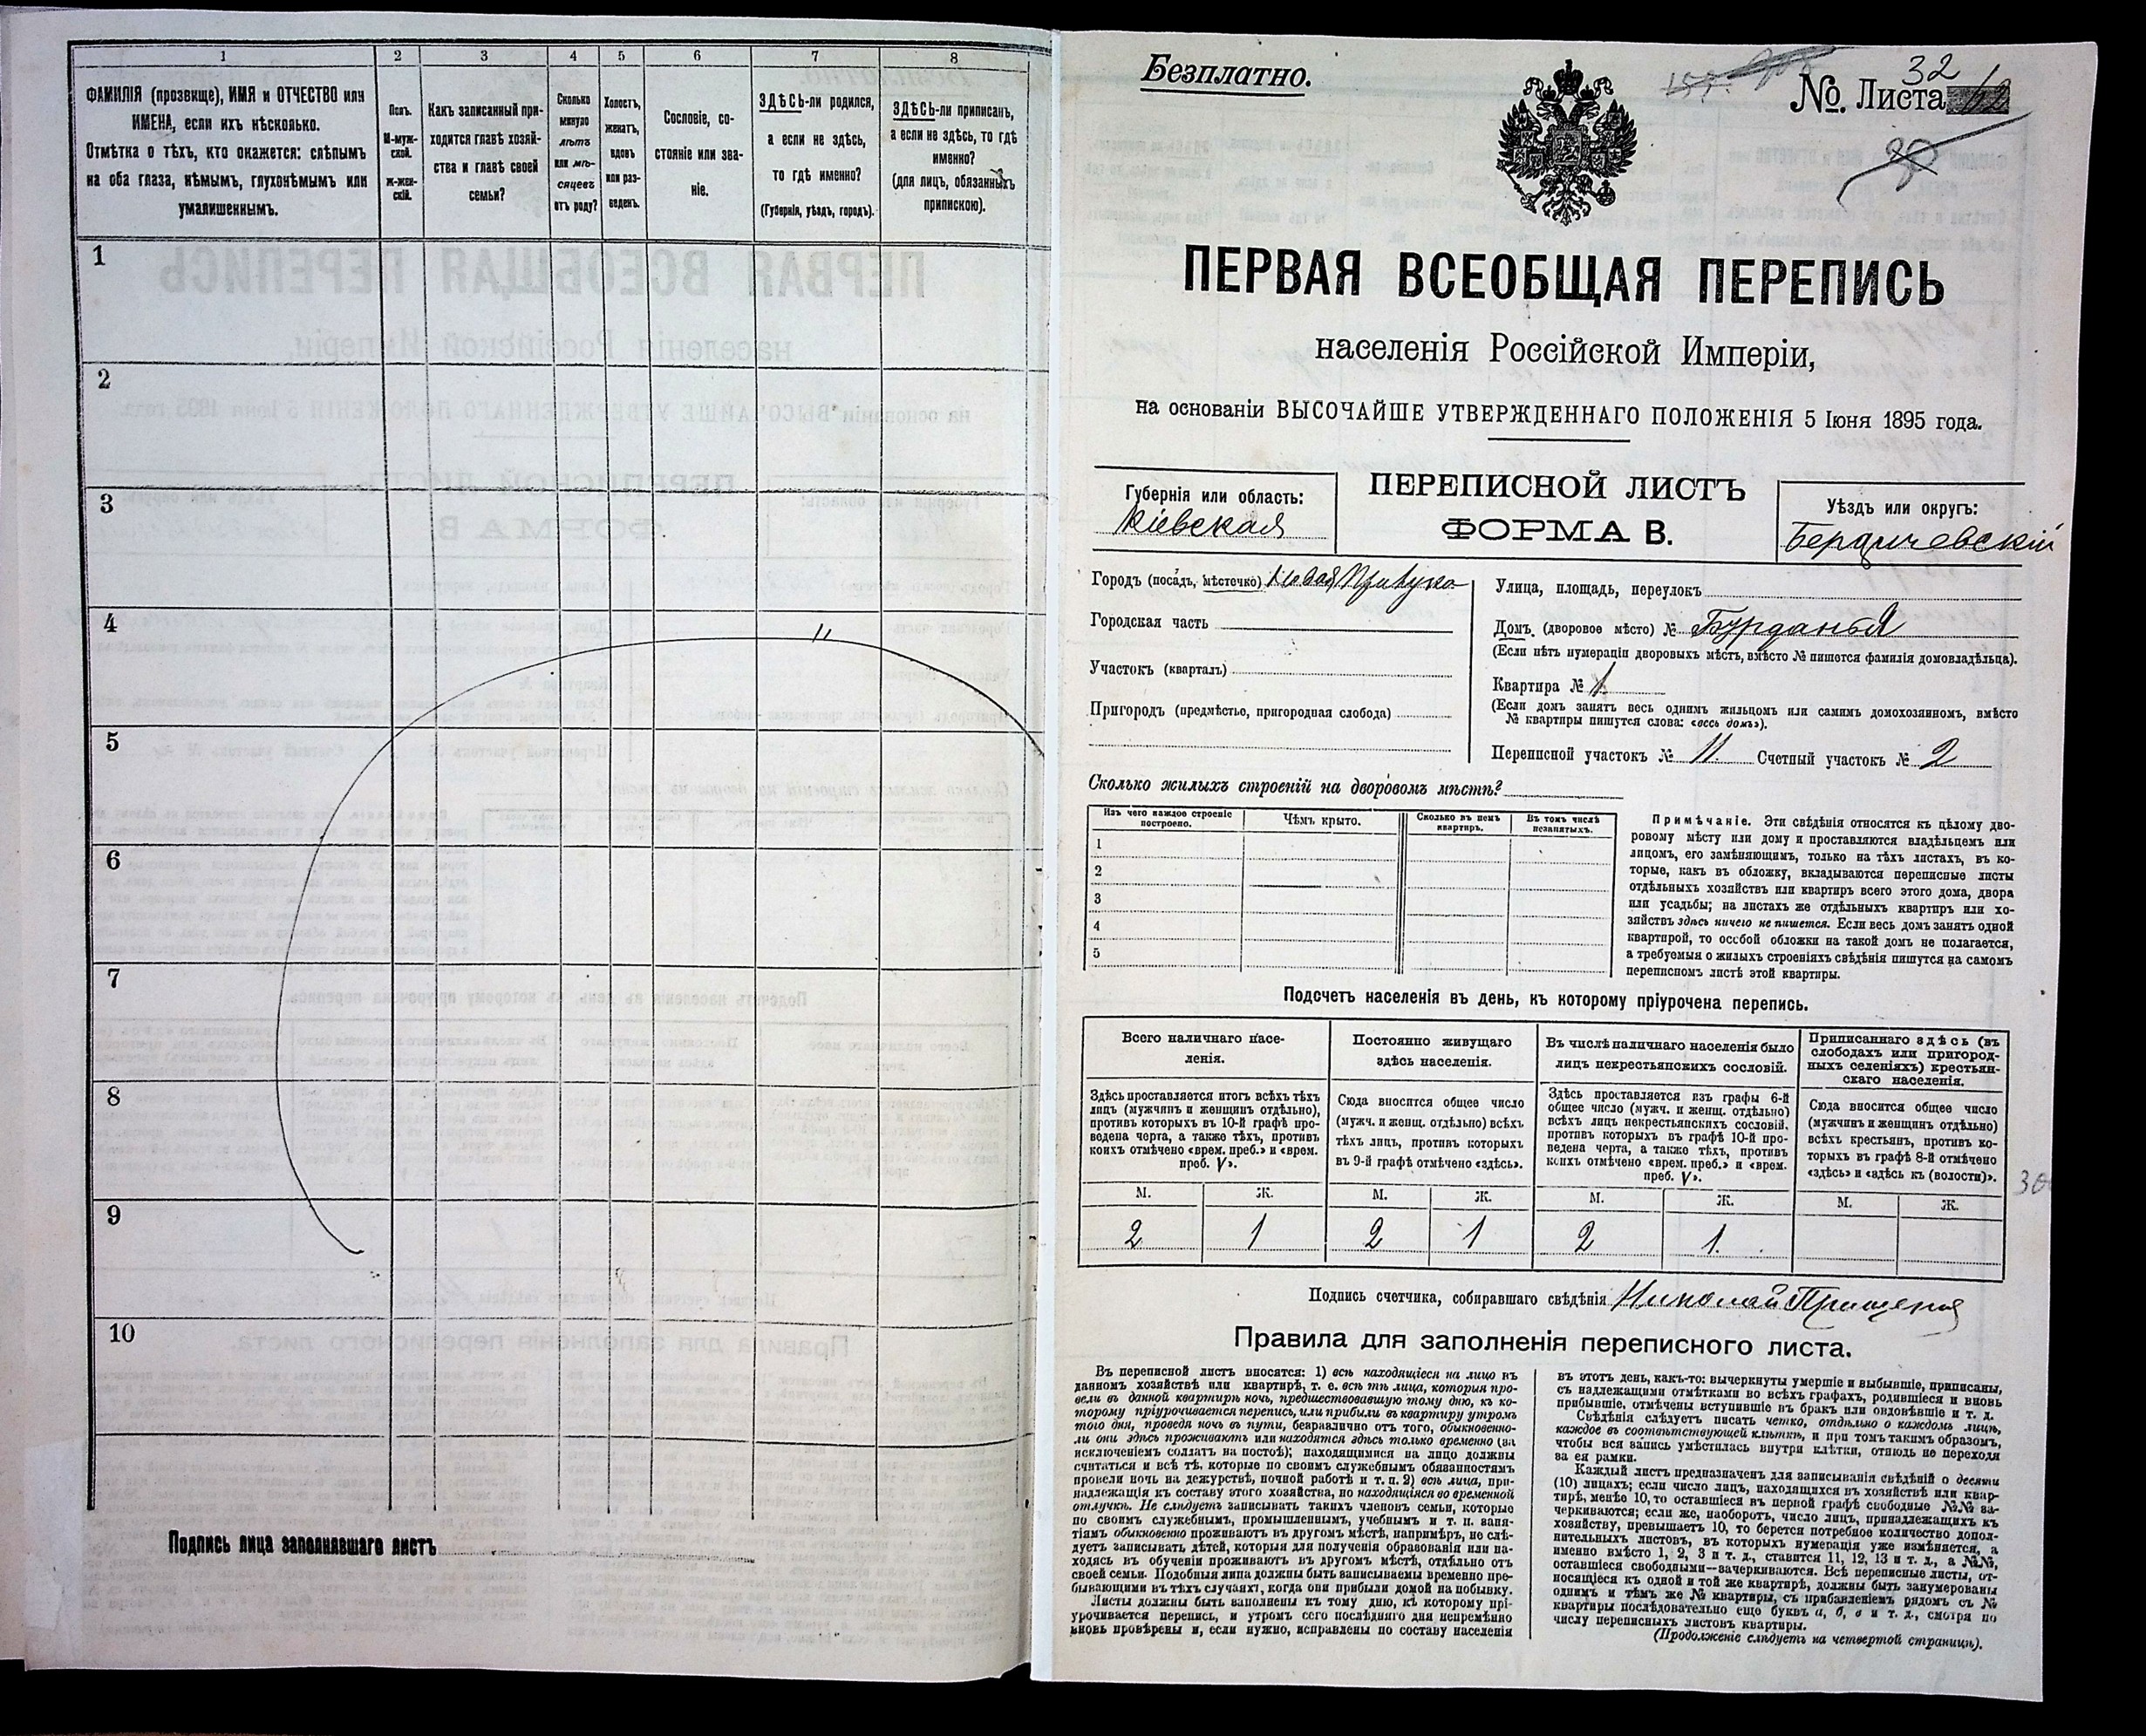 1 2 3 4 5 6 7 8
ФАМИЛІЯ (прозвище), ИМЯ и ОТЧЕСТВО или
ИМЕНА, если ихъ нѣсколько.
Отмѣтка о тѣхъ, кто окажется: слѣпымъ
на оба глаза, нѣмымъ, глухонѣмымъ или
умалишеннымъ.
Полъ.
М-муж-
ской.
Ж-жен-
скій.
Какъ записанный при-
ходится главѣ хозяй-
ства и главѣ своей
семьи?
Сколько
минуло
лѣтъ
или мѣ-
сяцевъ
отъ роду?
Холостъ,
женатъ,
вдовъ
или раз-
веденъ.
Сословіе, со-
стояніе или зва-
ніе.
ЗДѢСЬ-ли родился,
а если не здѣсь,
то гдѣ именно?
(Губернія, уѣздъ, городъ).
ЗДѢСЬ-ли приписанъ,
а если не здѣсь, то гдѣ
именно?
(для лицъ, обязанныхъ
припискою).
1
2
3
4
5
6
7
8
9
10
Подпись лица заполнявшаго листъ
Безплатно.
32
№ Листа
ПЕРВАЯ ВСЕОБЩАЯ ПЕРЕПИСЬ
населенія Россійской Имперіи,
на основаніи ВЫСОЧАЙШЕ УТВЕРЖДЕННАГО ПОЛОЖЕНІЯ 5 Іюня 1895 года.
Губернія или область:
Кіевская
ПЕРЕПИСНОЙ ЛИСТЪ
ФОРМА В.
Уѣздъ или округъ:
Бердичевскій
Городъ (посадъ, мѣстечко) Новая Прилука
Городская часть
Участокъ (кварталъ)
Пригородъ (предмѣстье, пригородная слобода)
Улица, площадь, переулокъ
Домъ (дворовое мѣсто) №
(Если нѣтъ нумераціи дворовыхъ мѣстъ, вмѣсто № пишется фамилія домовладѣльца).
Квартира № 1
(Если домъ занятъ весь однимъ жильцомъ или самимъ домохозяиномъ, вмѣсто
№ квартиры пишутся слова: «весь домъ»).
Переписной участокъ № 11. Счетный участокъ № 2
Сколько жилыхъ строеній на дворовомъ мѣстѣ?
Изъ чего каждое строеніе
построено.
Чѣмъ крыто.
Сколько въ немъ
квартиръ.
Въ томъ числѣ
незанятыхъ.
1
2
3
4
5
Примѣчаніе. Эти свѣдѣнія относятся къ цѣлому дво-
ровому мѣсту или дому и проставляются владѣльцемъ или
лицомъ, его замѣняющимъ, только на тѣхъ листахъ, въ ко-
торые, какъ въ обложку, вкладываются переписные листы
отдѣльныхъ хозяйствъ или квартиръ всего этого дома, двора
или усадьбы; на листахъ же отдѣльныхъ квартиръ или хо-
зяйствъ здѣсь ничего не пишется. Если весь домъ занятъ одной
квартирой, то особой обложки на такой домъ не полагается,
а требуемыя о жилыхъ строеніяхъ свѣдѣнія пишутся на самомъ
переписномъ листѣ этой квартиры.
Подсчетъ населенія въ день, къ которому пріурочена перепись.
Всего наличнаго насе-
ленія.
Здѣсь проставляется итогъ всѣхъ тѣхъ
лицъ (мужчинъ и женщинъ отдѣльно),
противъ которыхъ въ 10-й графѣ про-
ведена черта, а также тѣхъ, противъ
коихъ отмѣчено «врем. преб.» и «врем.
преб. V».
Постоянно живущаго
здѣсь населенія.
Сюда вносится общее число
(мужч. и женщ. отдѣльно) всѣхъ
тѣхъ лицъ, противъ которыхъ
въ 9-й графѣ отмѣчено «здѣсь».
Въ числѣ наличнаго населенія было
лицъ некрестьянскихъ сословій.
Здѣсь проставляется изъ графы 6-й
общее число (мужч. и женщ. отдѣльно)
всѣхъ лицъ некрестьянскихъ сословій,
противъ которыхъ въ графѣ 10-й про-
ведена черта, а также тѣхъ, противъ
коихъ отмѣчено «врем. преб.» и «врем.
преб. V».
Приписаннаго здѣсь (въ
слободахъ или пригород-
ныхъ селеніяхъ) крестьян-
скаго населенія.
Сюда вносится общее число
(мужчинъ и женщинъ отдѣльно)
всѣхъ крестьянъ, противъ ко-
торыхъ въ графѣ 8-й отмѣчено
«здѣсь» и «здѣсь къ (волости)».
М. Ж. М. Ж. М. Ж. М. Ж.
2 1 2 1 2 1.
Подпись счетчика, собиравшаго свѣдѣнія Николай
Правила для заполненія переписного листа.
Въ переписной листъ вносятся: 1) всѣ находящіеся на лицо въ
данномъ хозяйствѣ или квартирѣ, т. е. всѣ тѣ лица, которыя про-
вели въ данной квартирѣ ночь, предшествовавшую тому дню, къ ко-
торому пріурочивается перепись, или прибыли въ квартиру утромъ
того дня, проведя ночь въ пути, безразлично отъ того, обыкновенно-
ли они здѣсь проживаютъ или находятся здѣсь только временно (за
исключеніемъ солдатъ на постоѣ); находящимися на лицо должны
считаться и всѣ тѣ, которые по своимъ служебнымъ обязанностямъ
провели ночь на дежурствѣ, ночной работѣ и т. п. 2) всѣ лица, при-
надлежащія къ составу этого хозяйства, но находящіяся во временной
отлучкѣ. Не слѣдуетъ записывать такихъ членовъ семьи, которые
по своимъ служебнымъ, промышленнымъ, учебнымъ и т. п. заня-
тіямъ обыкновенно проживаютъ въ другомъ мѣстѣ, напримѣръ, не слѣ-
дуетъ записывать дѣтей, которыя для полученія образованія или на-
ходясь въ обученіи проживаютъ въ другомъ мѣстѣ, отдѣльно отъ
своей семьи. Подобныя лица должны быть записываемы временно пре-
бывающими въ тѣхъ случаяхъ, когда они прибыли домой на побывку.
Листы должны быть заполнены къ тому дню, къ которому прі-
урочивается перепись, и утромъ сего послѣдняго дня непремѣнно
вновь провѣрены и, если нужно, исправлены по составу населенія
въ этотъ день, какъ-то: вычеркнуты умершіе и выбывшіе, приписаны,
съ надлежащими отмѣтками во всѣхъ графахъ, родившіеся и вновь
прибывшіе, отмѣчены вступившіе въ бракъ или овдовѣвшіе и т. д.
Свѣдѣнія слѣдуетъ писать четко, отдѣльно о каждомъ лицѣ,
каждое въ соотвѣтствующей клѣткѣ, и при томъ такимъ образомъ,
чтобы вся запись умѣстилась внутри клѣтки, отнюдь не переходя
за ея рамки.
Каждый листъ предназначенъ для записыванія свѣдѣній о десяти
(10) лицахъ; если число лицъ, находящихся въ хозяйствѣ или квар-
тирѣ, менѣе 10, то оставшіеся въ первой графѣ свободные №№ за-
черкиваются; если же, наоборотъ, число лицъ, принадлежащихъ къ
хозяйству, превышаетъ 10, то берется потребное количество допол-
нительныхъ листовъ, въ которыхъ нумерація уже измѣняется, а
именно вмѣсто 1, 2, 3 и т. д., ставится 11, 12, 13 и т. д., а №№,
оставшіеся свободными—зачеркиваются. Всѣ переписные листы, от-
носящіеся къ одной и той же квартирѣ, должны быть занумерованы
однимъ и тѣмъ же № квартиры, съ прибавленіемъ рядомъ съ №
квартиры послѣдовательно еще буквъ а, б, в и т. д., смотря по
числу переписныхъ листовъ квартиры.
(Продолженіе слѣдуетъ на четвертой страницѣ).